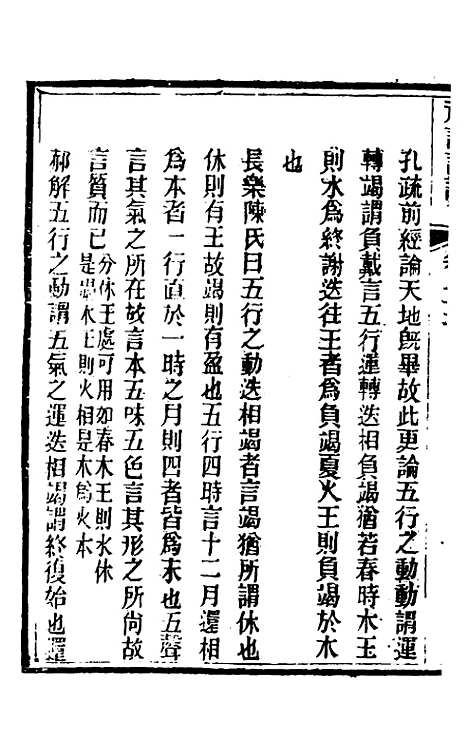 孔疏前經論天地既畢故此更論五行之動動謂運
轉竭謂負戴言五行運轉迭相負竭猶若春時木王
則水爲終謝迭往王者爲負竭夏火王則負竭於木
也
長樂陳氏曰五行之動迭相竭者言竭猶所謂休也
休則有王故竭則有盈也五行四時言十二月還相
爲本者一行直於一時之月則四者皆爲末也五聲
言其氣之所在故言本五味五色言其形之所尚故
言質而已分休王處可用如春木王則水休
是竭木王則火相是木爲火本
郝解五行之動謂五氣之運迭相竭謂終復始也還